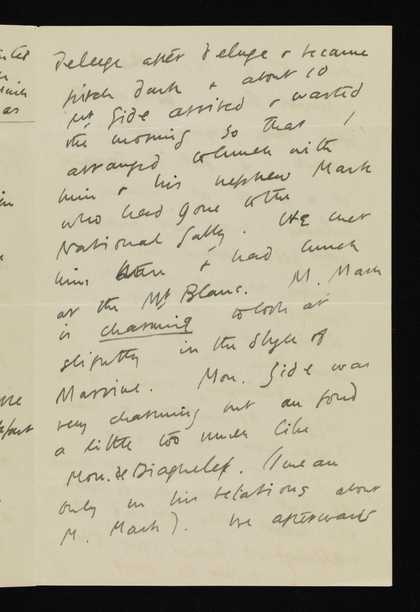 Deluge after Deluge & became
pitch dark & about 10
Mr Gide arrived & wasted
the morning so that I
arranged to lunch with
him & his nephew Mark
who had gone to the
National Gally. We met
him there & had lunch
at the Mt Blanc. M. Mark
is charming to look at
slightly in the style of
Massine. Mon. Gide was
very charming but
a little too much like
Mon. de Diaghelef. (I mean
only in his relations about
M. Mark). We afterwards